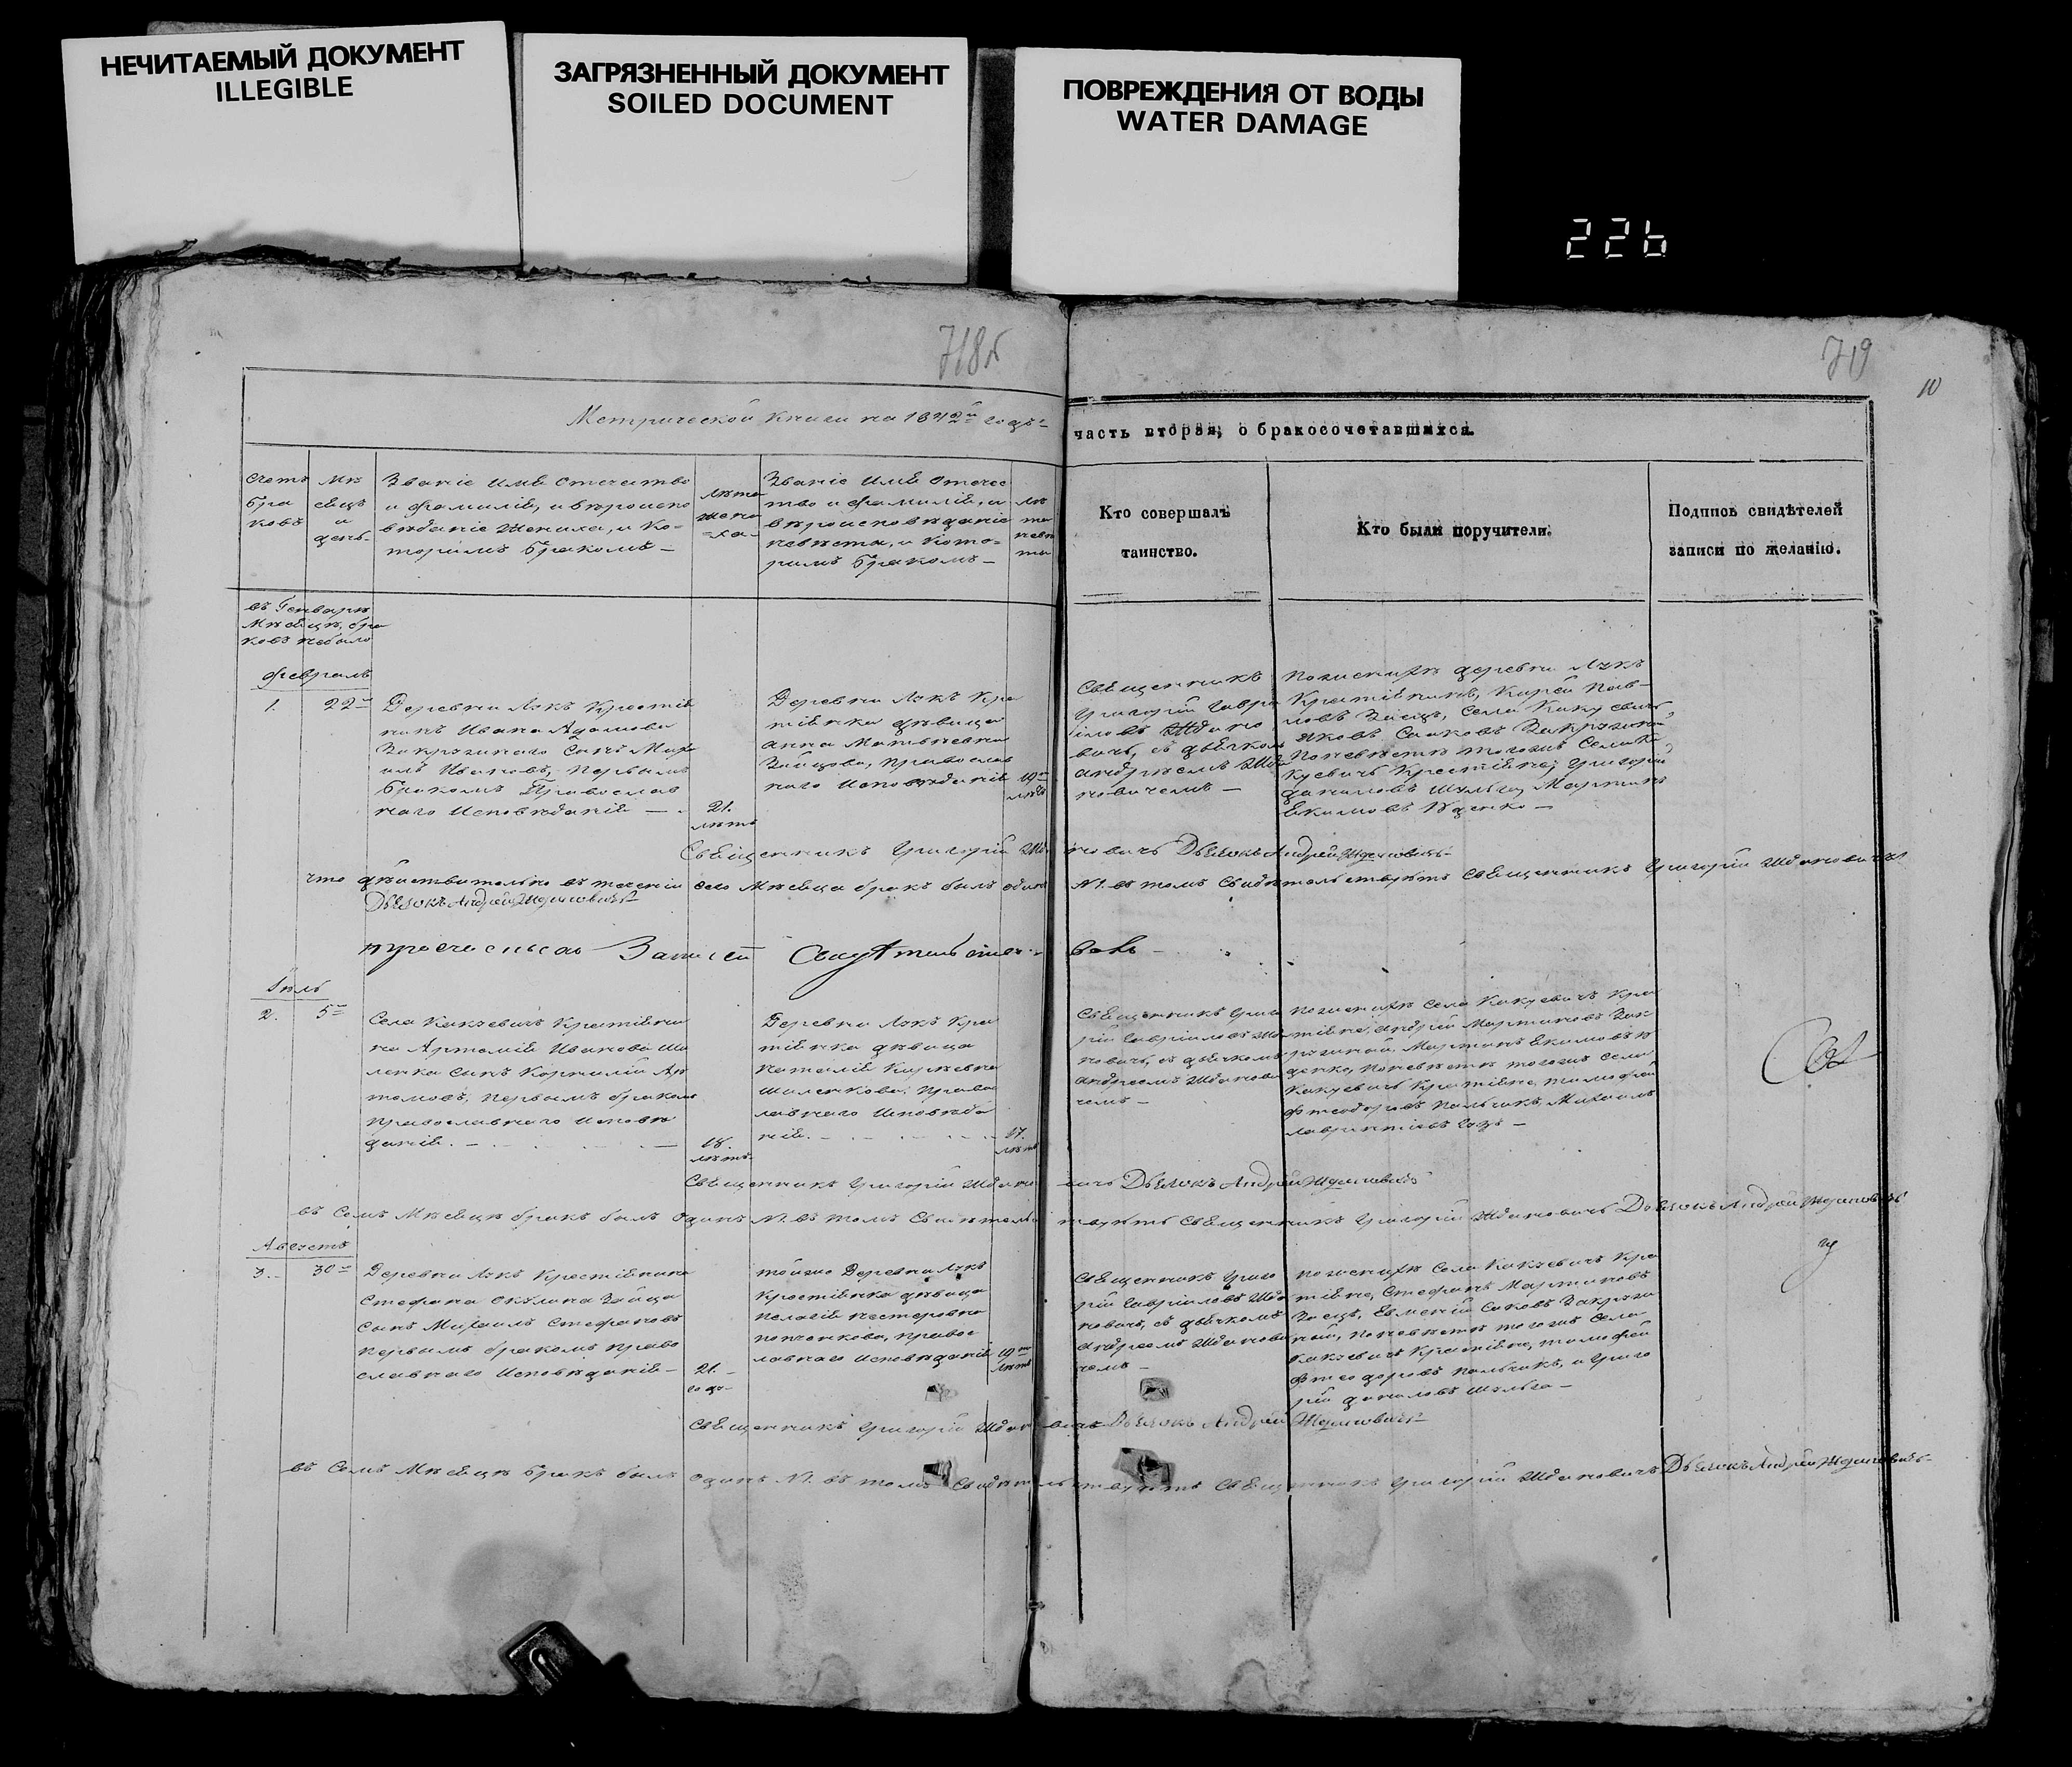 НЕЧИТАЕМЫЙ ДОКУМЕНТ
ILLEGIBLE
ЗАГРЯЗНЕННЫЙ ДОКУМЕНТ
SOILED DOCUMENT
ПОВРЕЖДЕНИЯ ОТ ВОДЫ
WATER DAMAGE
226
718б
719
10
Метрической книги на 1842й годъ
часть вторая, о бракосочетавшихся.
Счетъ
бра
ковъ
Мѣ
сяцъ
и
день
Званіе Имя Отечество
и фамилія, и вѣроиспо
вѣданіе Жениха, и ко-
торымъ бракомъ
Лѣта
жени
ха
Званіе Имя Отечес
тво и фамилія, и
вѣроисповѣданіе
невѣста, и кото-
рымъ бракомъ
Лѣ
та
невѣ
ты
Кто совершалъ
таинство.
Кто были поручители.
Подпись свидѣтелей
записи по желанію.
въ Генварѣ
Мѣсяцѣ, бра
ковъ небыло
Февраль
1.
22
Деревни Лукъ Крестья
нинъ Ивана Адамова
сынъ
Ивановъ, первымъ
бракомъ Православ
наго Исповѣданія
21.
лѣтъ
Деревни Лукъ Кре
тьянка дѣвица
Анна Матвѣевна
Зайцова, православ
наго Исповѣданія
19
лѣтъ
Священникъ
Григорій Гаври
иловъ Ждано
вичъ, съ дьячкомъ
Андреемъ Жда
новичемъ
деревни Лукъ
Крестьянинъ, Пав-
ловъ Заецъ, Села
Григорій
Даниловъ Шульга, Мартинъ
Екимовъ
Священникъ Григорій Ждановичъ Дьячокъ Андрей Ждановичъ
что дѣйствительно въ теченіи сего Мѣсяца бракъ былъ одинъ №1. въ томъ Свидѣтельствуетъ Священникъ Григорій Ждановичъ
Дьячокъ Андрей Ждановичъ
Записи
Іюль
2.
5
Села Крестьяни
на Артемія Иванова Ши
ленка сынъ Корнилій Ар
темовъ, первымъ бракомъ
православнаго исповѣ
данія.
18.
лѣтъ
Деревни Лукъ Кре
тьянка дѣвица
Наталія
Шиленкова, Правос
лавнаго Исповѣда
нія.
17.
лѣтъ
Священникъ Григо
рій Гавриловъ Жда
новичъ, съ дьячкомъ
Андреемъ Жданови
чемъ
Села Кре
тьяне, Андрей Мартиновъ Зак
Мартинъ Екимовъ
тогожъ Села
Крестьяне, Тимофей
Феодоровъ Пальчикъ, Михаилъ
Лаврентіевъ
Священникъ Григорій Ждановичъ Дьячокъ Андрей Ждановичъ
въ Семъ Мѣсяцѣ бракъ былъ Одинъ №1. въ томъ Свидѣтельствуетъ Священникъ Григорій Ждановичъ Дьячокъ Андрей Ждановичъ
Августъ
3.
30
Деревни Лукъ Крестьянина
Стефана Зайца
Сынъ Михаилъ Стефановъ
первымъ бракомъ право
славнаго Исповѣданія
21.
годъ
тойже Деревни Лукъ
Крестьянка дѣвица
Пелагія Нестеровна
правос
лавнаго Исповѣданія
19
лѣтъ
Священникъ Григо
рій Гавриіловъ Жда
новичъ, съ дьячкомъ
Андреемъ Жданови
чемъ
Села Кре
тьяне, Стефанъ Мартиновъ
Заецъ,
тогожъ Села
Крестьяне, Тимофей
Феодоровъ Пальчикъ, и Григо
рій Даниловъ Шульга
Священникъ Григорій Ждановичъ Дьячокъ Андрей Ждановичъ
въ Семъ Мѣсяцѣ Бракъ былъ одинъ №1. въ томъ Свидѣтельствуетъ Священникъ Григорій Ждановичъ Дьячокъ Андрей Ждановичъ